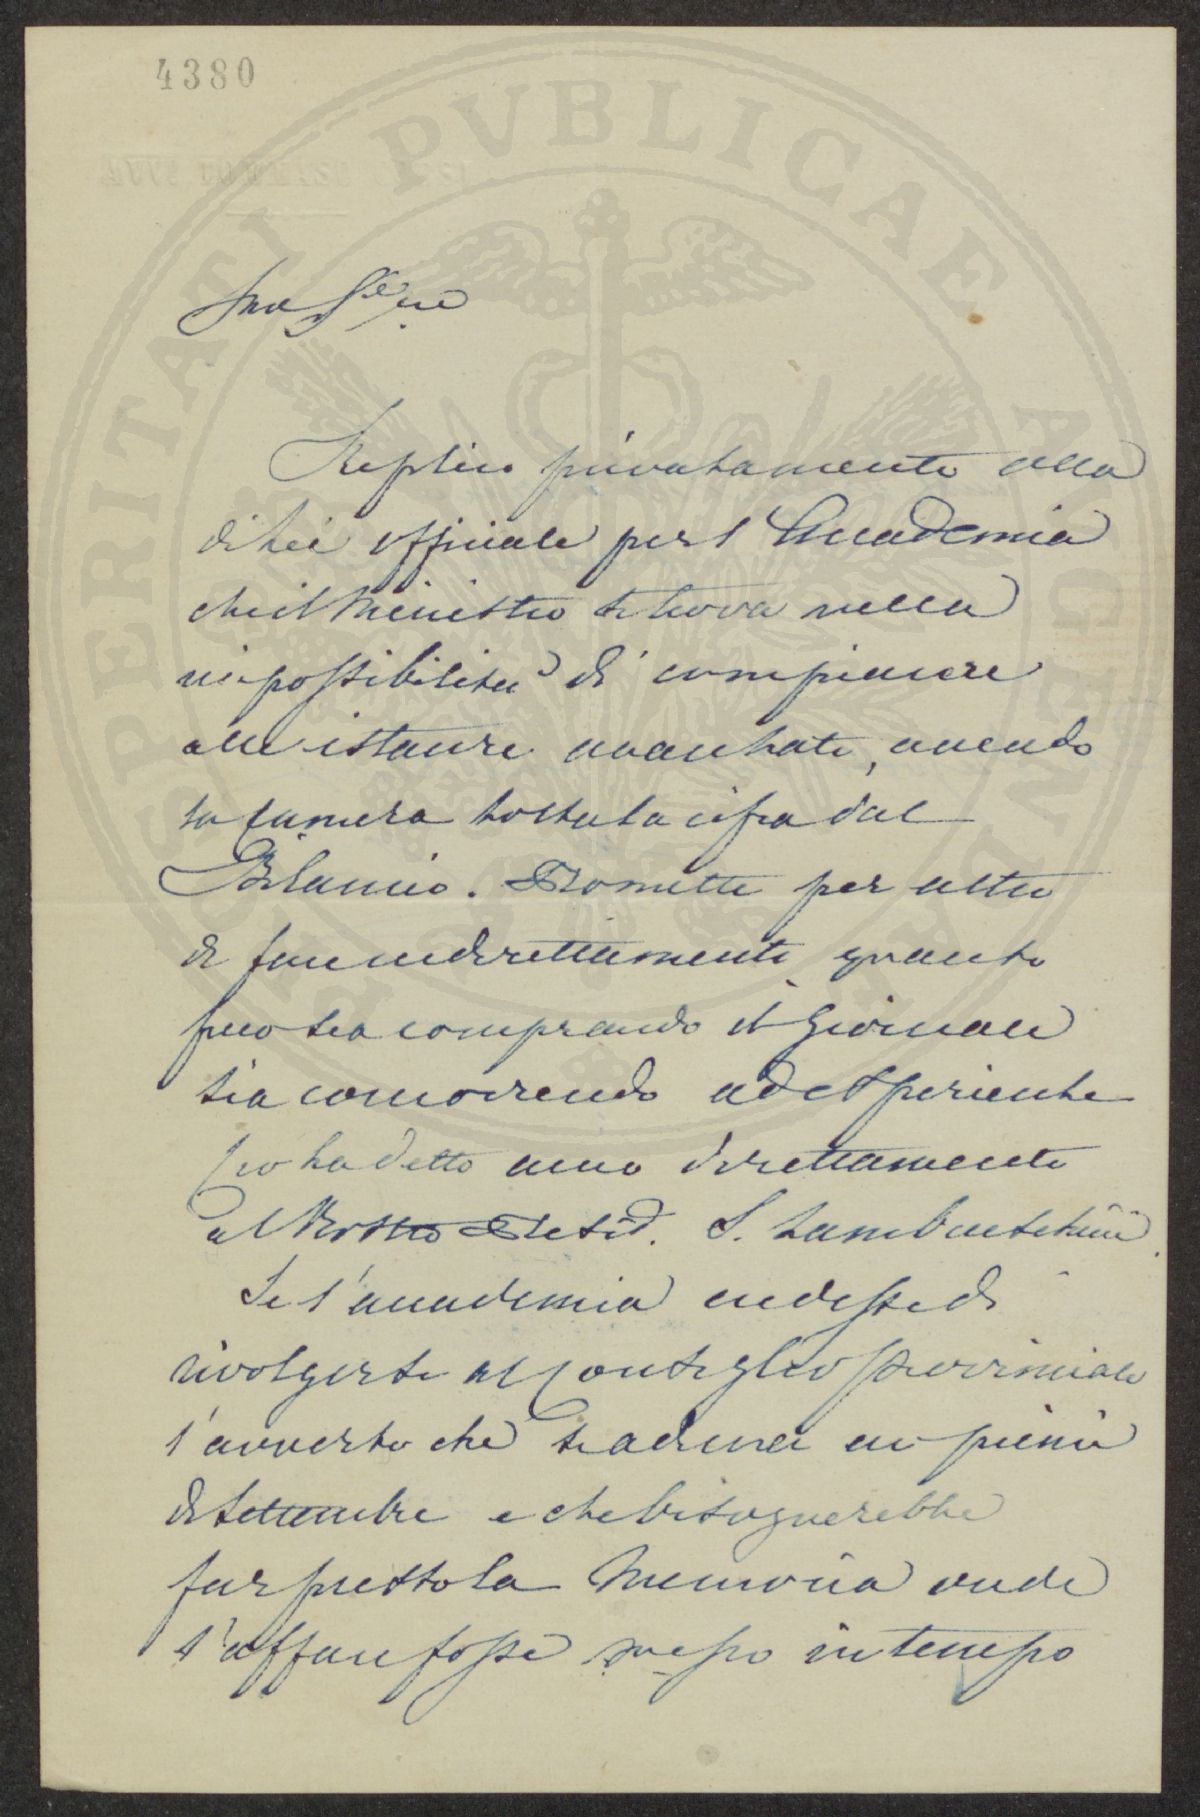 4380
PROSPERITATI PVBLICAE AVGENDAE
Replico privatamente alla
di Lei officiale per l'Accademia
che il Ministro si trova nella
impossibilità di compiacere
alle istanze avanzate, avendo
la Camera tolta la cifra dal
Bilancio. Promette per altro
di fare indirettamente quanto
può sia comprando il Giornale
sia concorrendo ad esperienze
Ciò ha detto anco direttamente
al Presid. S. Lambruschini.
Se l'accademia credesse di
rivolgersi al Consiglio Provinciale
l'avverto che si aduna ai primi
di Settembre e che bisognerebbe
far presto la Memoria onde
l'affare fosse messo in tempo